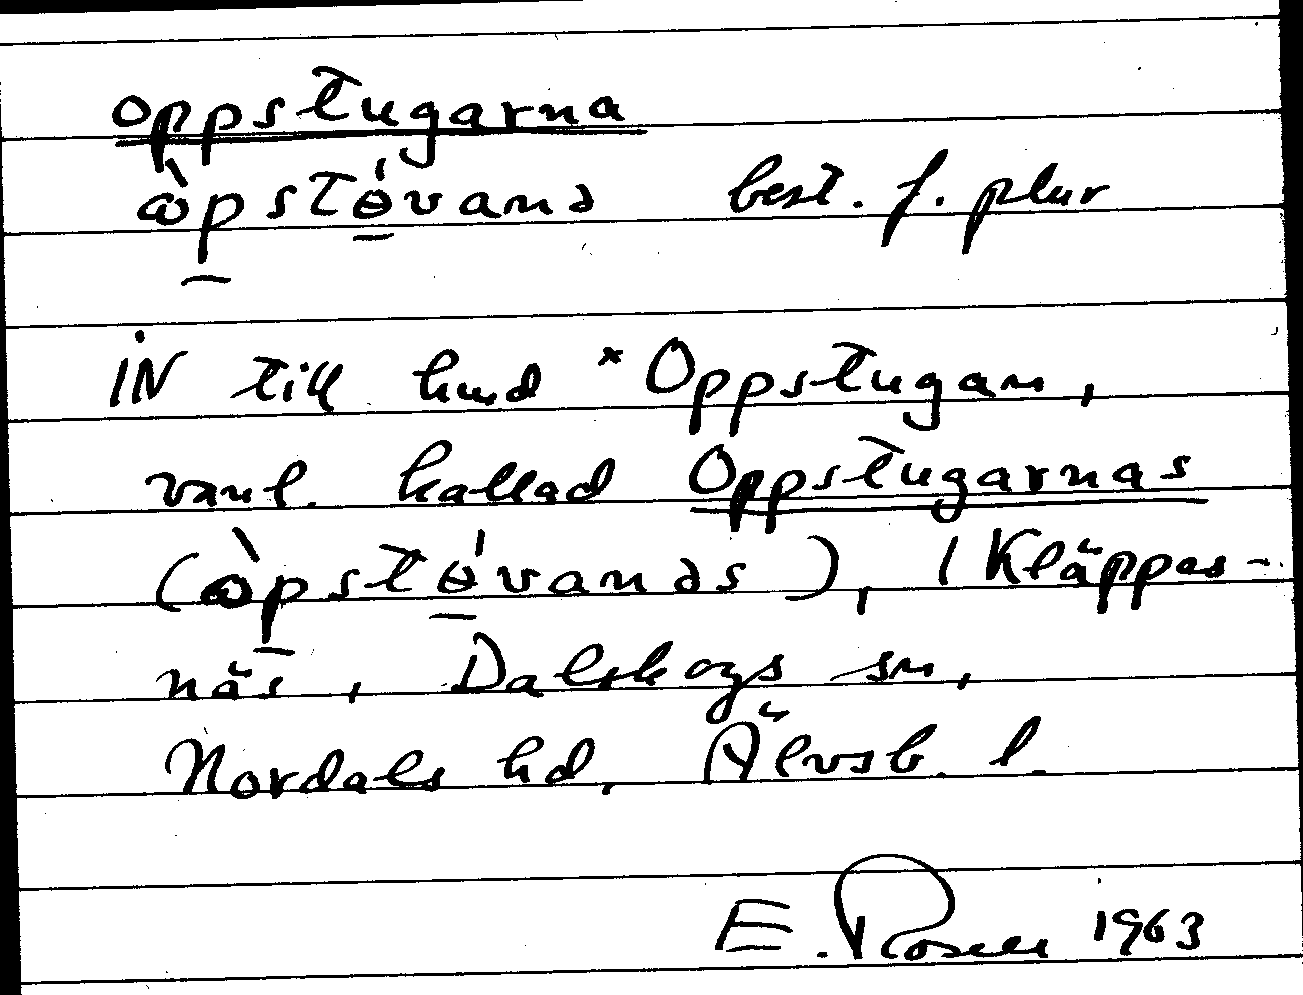 oppstugarna
ὼpstɵ́vanə best. f. plur
IN till hmd *Oppstugan,
vanl. kallad Oppstugarnas
(ὼpstɵ́vanəs), i Kläppes-
näs, Dalskogs sn,
Nordals hd, Älvsb. l.
E. Rosell 1963